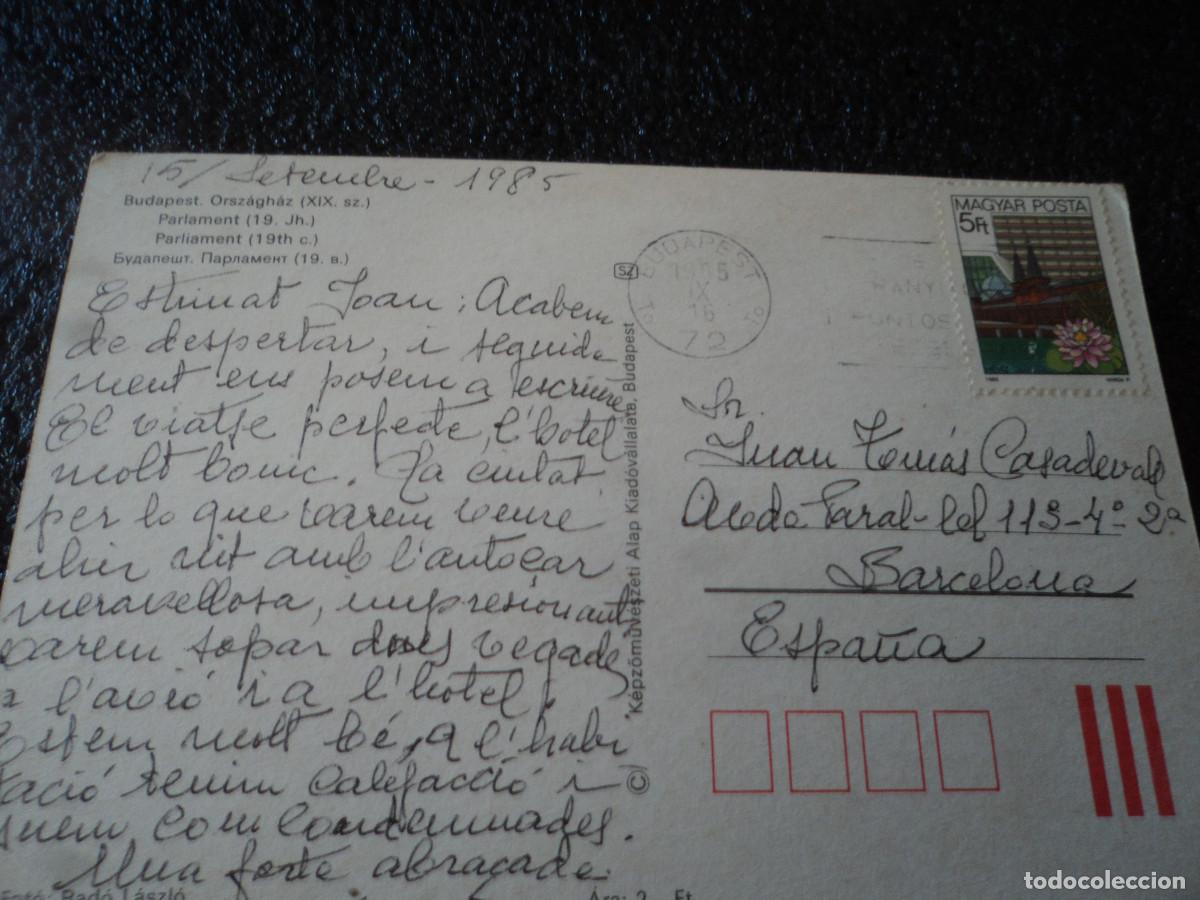 15/ Setembre - 1985
Budapest. Országház (XIX. sz.)
Parlament (19. Jh.)
Parliament (19th c.)
Будапешт. Парламент (19. в.)
Estimat Joan; Acabem
de despertar, i seguida
ment ens posem a escriure
El viatje perfecte, l'hotel
molt bonic. La ciutat
per lo que varem veure
ahir nit amb l'autocar
meravellosa, impresionant
varem sopar dues vegades
a l'avió i a l'hotel,
Estem molt bé, a l'habi
tació tenim calefacció i
com condemnades.
Una forta abraçada
Fotó: Radó László
Ára: 2 Ft
SZ
Képzőművészeti Alap Kiadóvállalata, Budapest
©
BUDAPEST
1985
IX
16
72
MAGYAR POSTA
5Ft
Sr.
Juan Tomás Casadevall
Avda Paral-lel 113-4º 2ª
Barcelona
España
todocoleccion